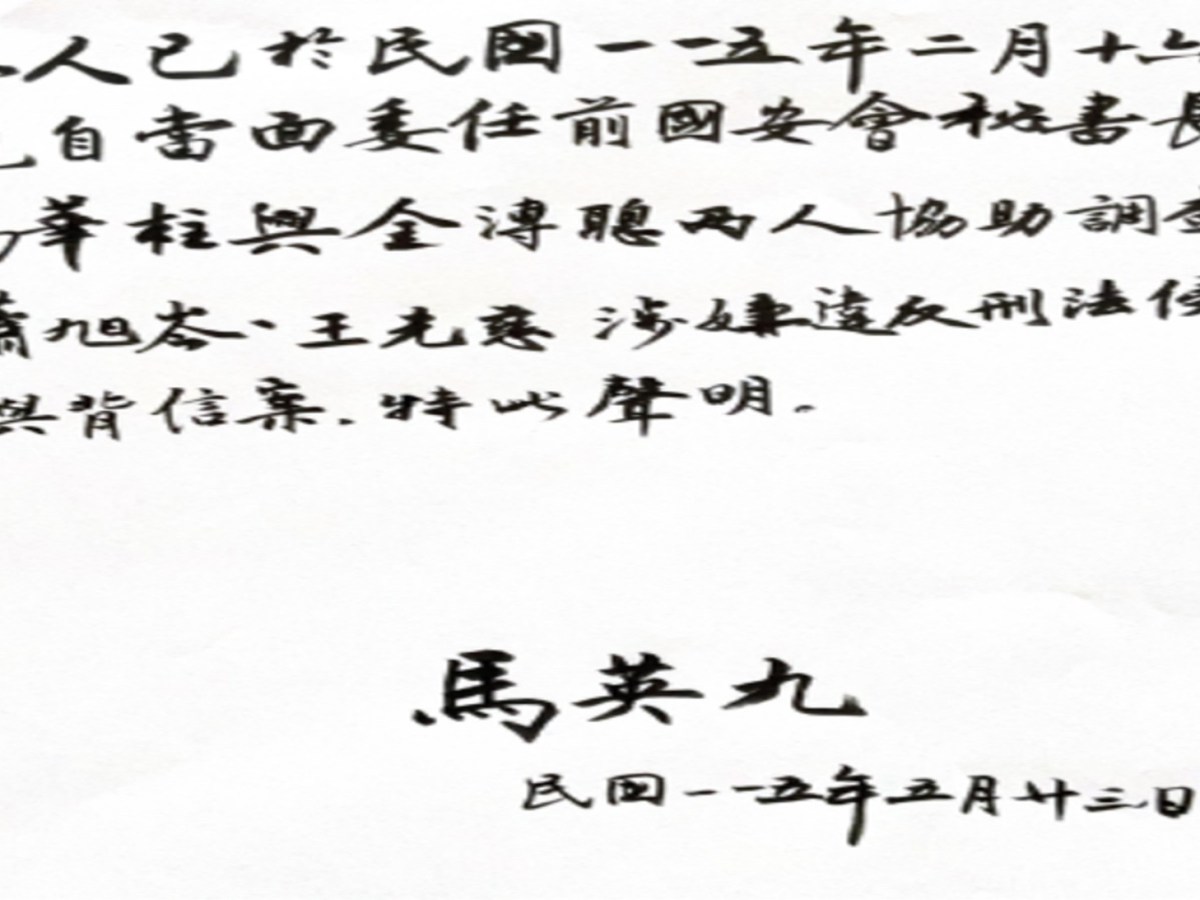 人已於民國一一五年二月十六
自當面委任前國安會秘書長
華柱與金溥聰兩人協助調查
蕭旭岑、王光慈 涉嫌違反刑法侵
與背信案.特此聲明。
馬英九
民国一一五年五月廿三日